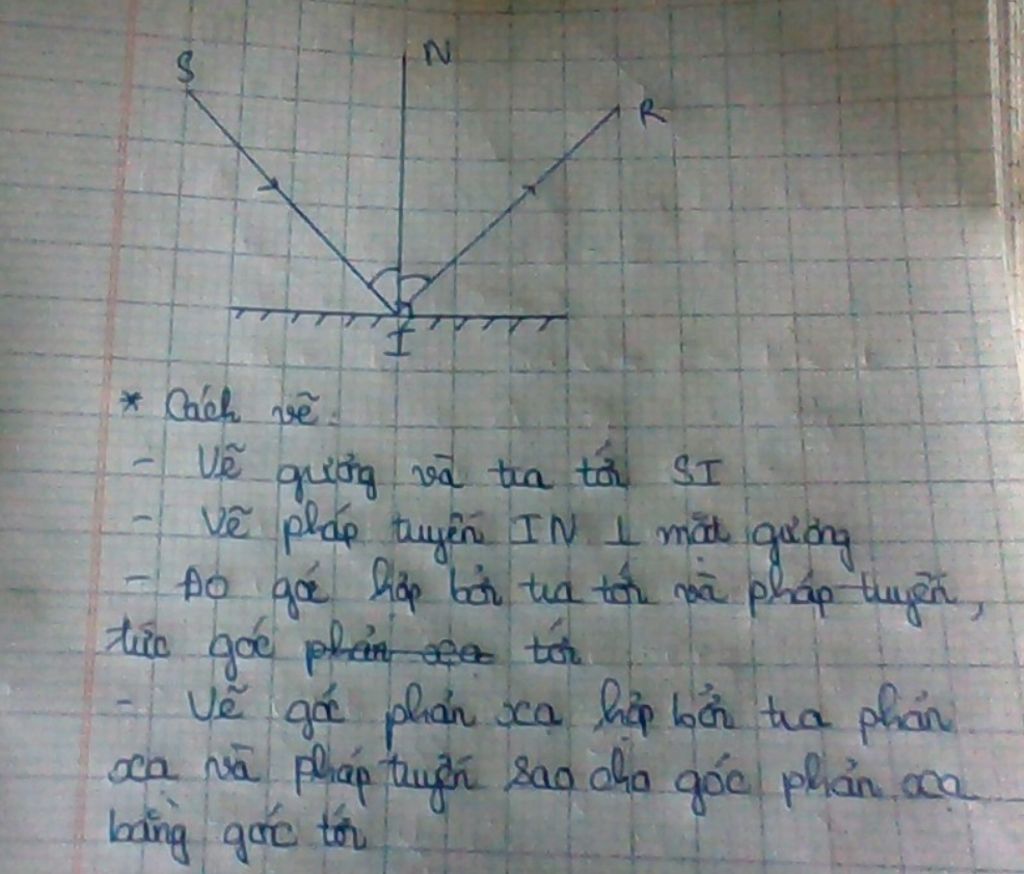 S
N
R
I
* Cách vẽ:
- Vẽ gương và tia tới SI
- Vẽ pháp tuyến IN ⊥ mặt gương
- Đo góc hợp bởi tia tới và pháp tuyến,
tức góc phản xạ tới
- Vẽ góc phản xạ hợp bởi tia phản
xạ và pháp tuyến sao cho góc phản xạ
bằng góc tới